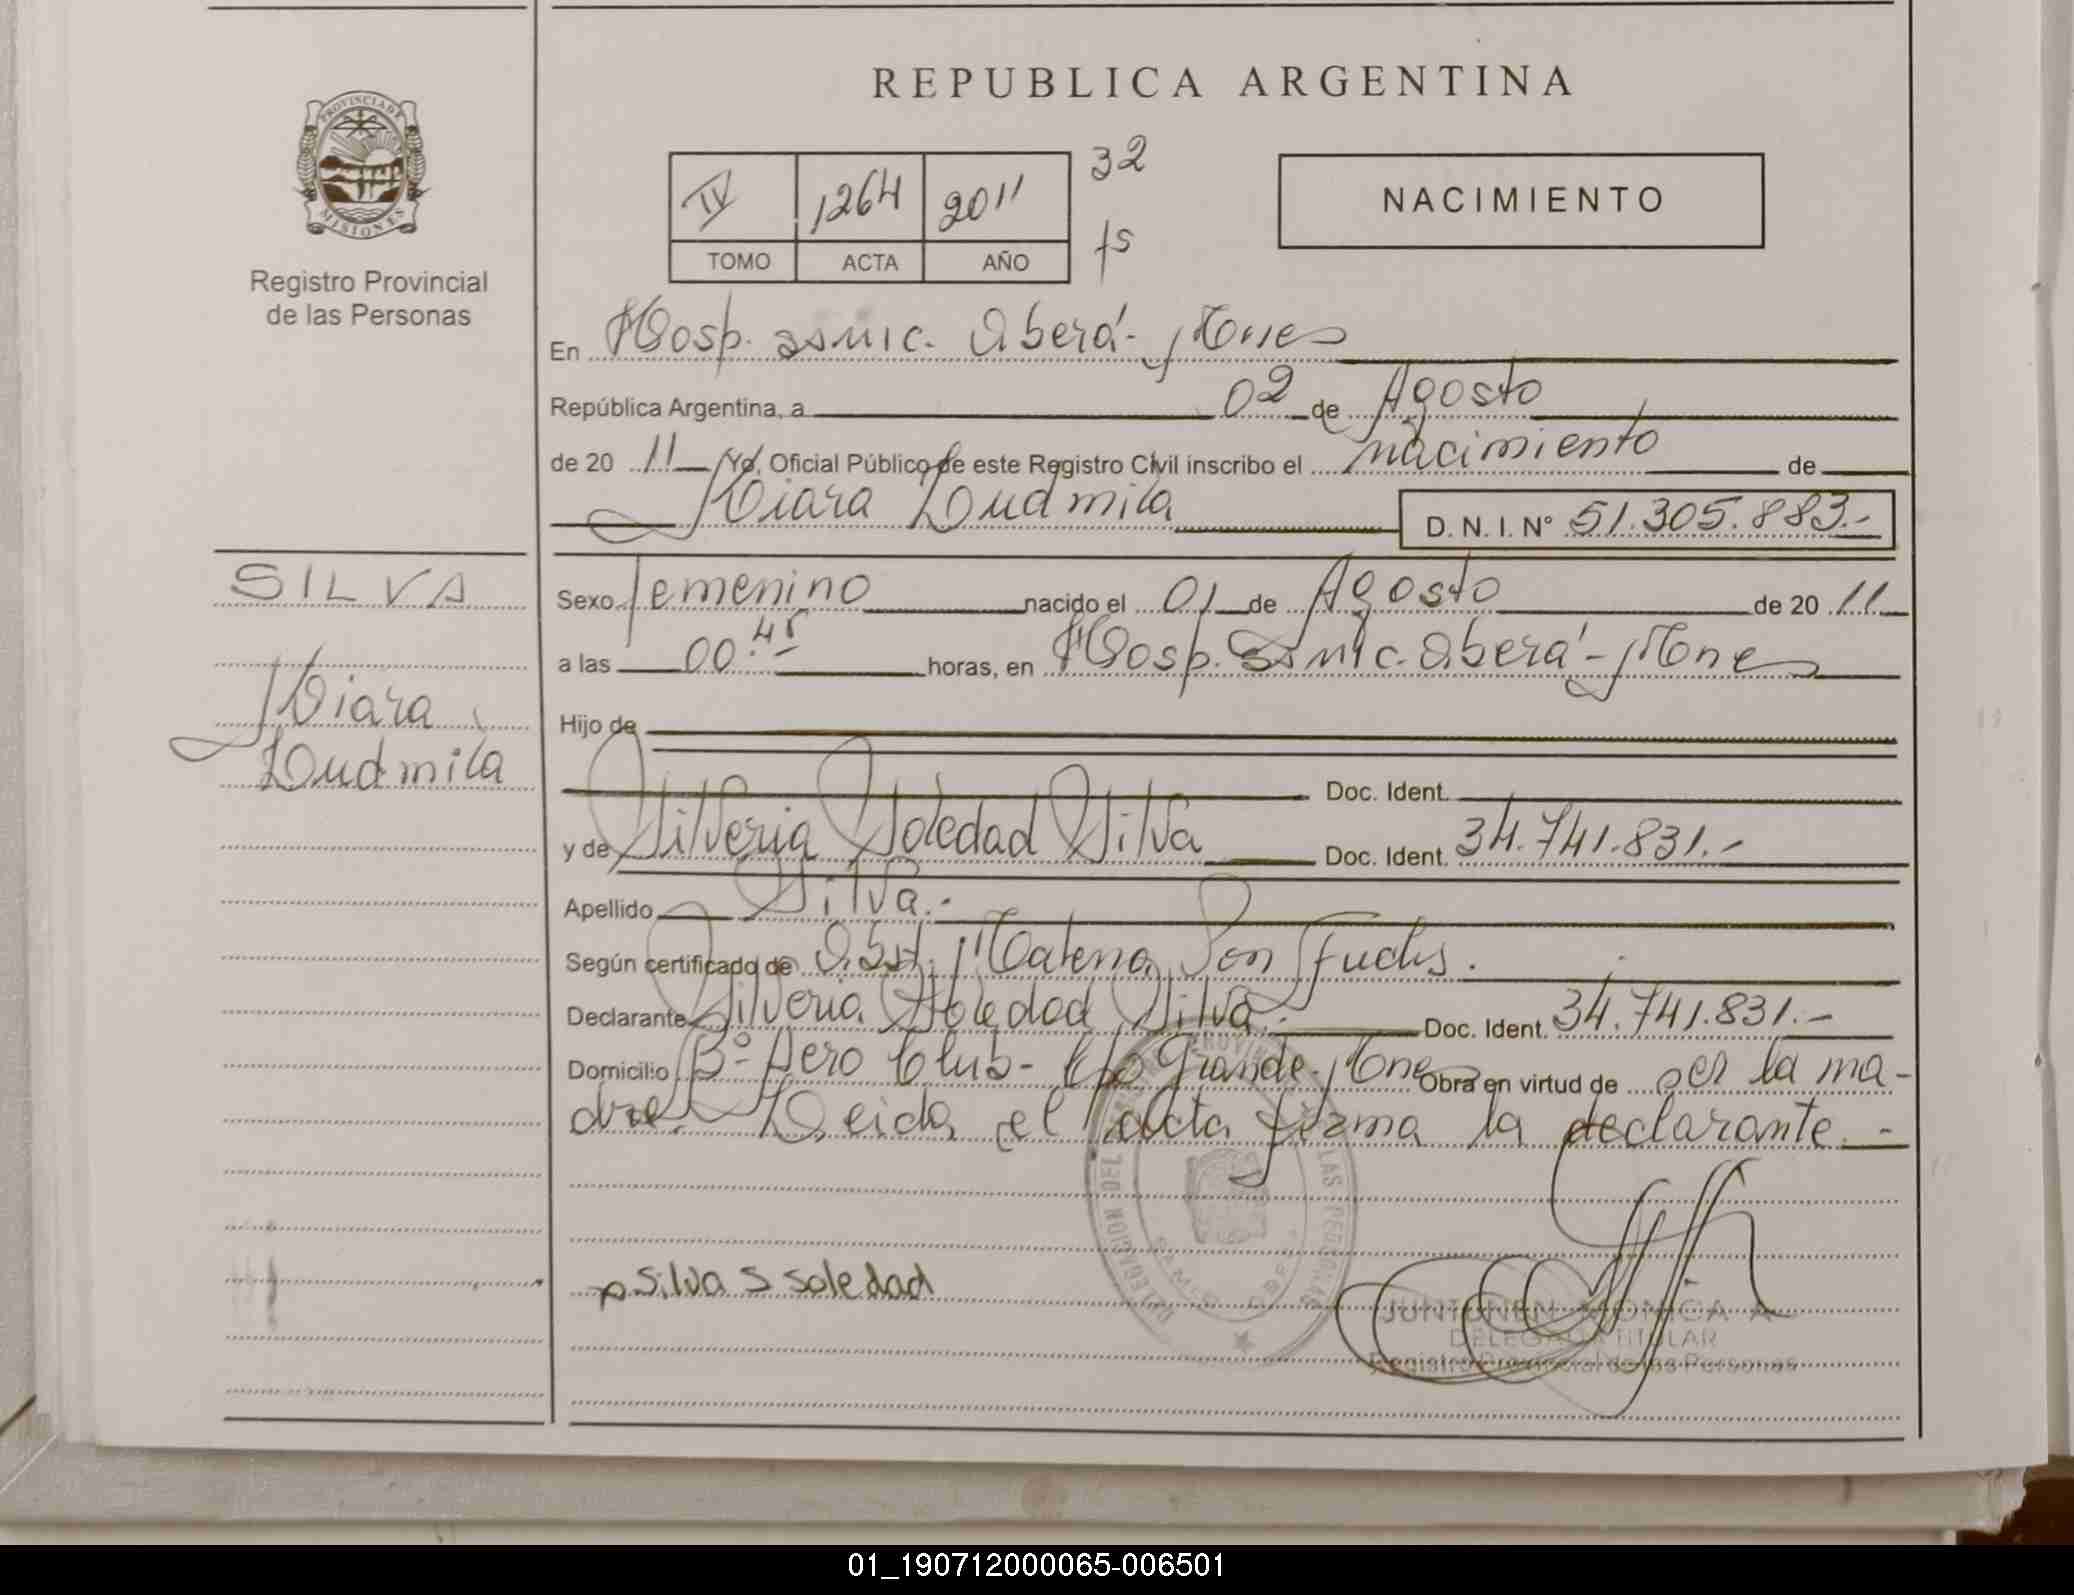 REPUBLICA ARGENTINA
PROVINCIA DE MISIONES
Registro Provincial
de las Personas
IV 1264 2011
TOMO ACTA AÑO
32
fs
NACIMIENTO
En Hosp. Samic. Oberá - Mnes
República Argentina, a 02 de Agosto
de 2011 Yo, Oficial Público de este Registro Civil inscribo el nacimiento de
Kiara Ludmila D. N. I. N° 51.305.883.-
SILVA
Kiara
Ludmila
Sexo femenino nacido el 01 de Agosto de 2011
a las 00:45 horas, en Hosp. Samic. Oberá - Mnes
Hijo de
Doc. Ident.
y de Silveria Soledad Silva Doc. Ident. 34.741.831.-
Apellido Silva.-
Según certificado de Obst. Fuchs.
Declarante Silveria Soledad Silva.- Doc. Ident. 34.741.831.-
Domicilio B° Aero Club - Cpo Grande - Mnes Obra en virtud de ser la ma-
dre. Leida el acta firma la declarante.-
DELEGACION DEL REGISTRO PROVINCIAL DE LAS PERSONAS
Silva S Soledad
JUNTUNEN MONICA A.
DELEGADA TITULAR
Registro Provincial de las Personas
01_190712000065-006501